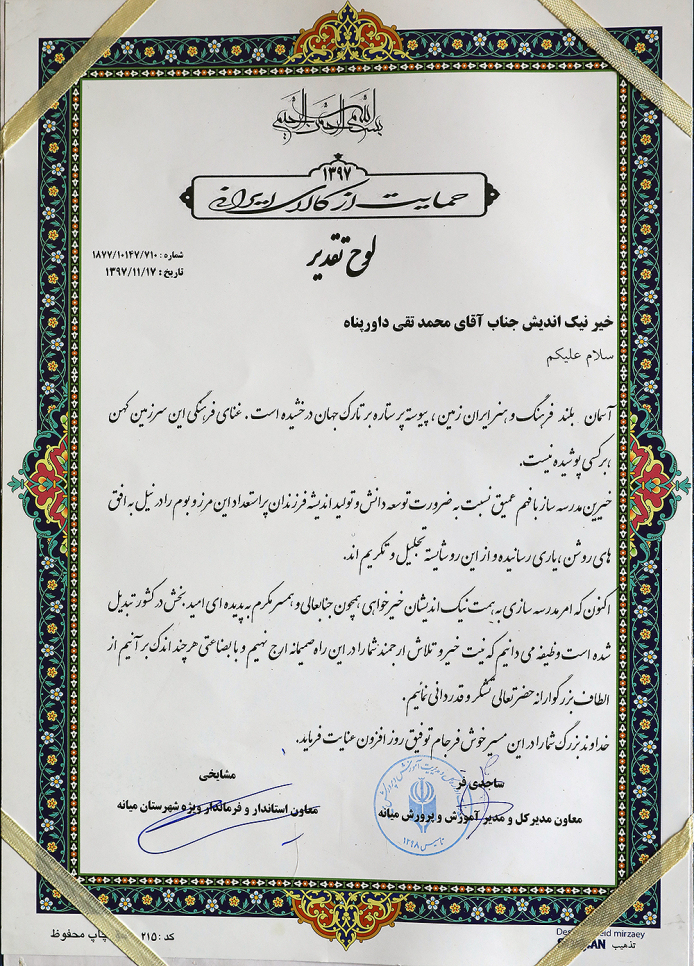 بسم الله الرحمن الرحیم
۱۳۹۷
حمایت از کالای ایرانی
لوح تقدیر
شماره : ۱۸۷۷/۱۰۱۴۷/۷۱۰
تاریخ : ۱۳۹۷/۱۱/۱۷
خیر نیک اندیش جناب آقای محمد تقی داورپناه
سلام علیکم
آسمان بلند فرهنگ و هنر ایران زمین ، پیوسته پر ستاره بر تارک جهان درخشیده است . غنای فرهنگی این سرزمین کهن
برکسی پوشیده نیست.
خیرین مدرسه ساز با فهم عمیق نسبت به ضرورت توسعه دانش و تولید اندیشه فرزندان پر استعداد این مرز و بوم را در نیل به افق
های روشن ، یاری رسانیده و از این رو شایسته تجلیل و تکریم اند.
اکنون که امر مدرسه سازی به همت نیک اندیشان خیرخواهی همچون جنابعالی و همسر مکرم به پدیده ای امید بخش در کشور تبدیل
شده است وظیفه می دانیم که نیت خیر و تلاش ارجمند شما را در این راه صمیمانه ارج نهیم و با بضاعتی هر چند اندک بر آنیم از
الطاف بزرگوارانه حضرتعالی تشکر و قدردانی نمائیم.
خداوند بزرگ شما را در این مسیر خوش فرجام توفیق روز افزون عنایت فرماید.
ساجدی فر
معاون مدیرکل و مدیر آموزش و پرورش میانه
تاسیس ۱۲۹۸
مشایخی
معاون استاندار و فرماندار ویژه شهرستان میانه
کد : ۲۱۵
چاپ محفوظ
mirzaey
تذهیب